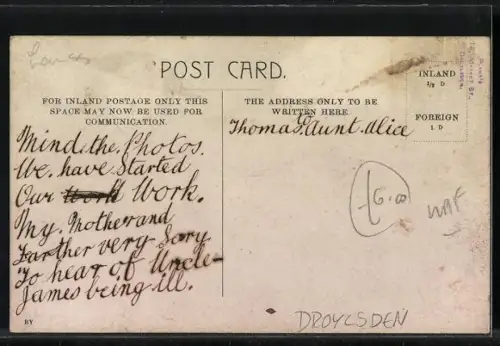 Lancs
POST CARD.
FOR INLAND POSTAGE ONLY THIS
SPACE MAY NOW BE USED FOR
COMMUNICATION.
THE ADDRESS ONLY TO BE
WRITTEN HERE.
INLAND
½ D
FOREIGN
1 D
to
Thomas. Aunt. Alice
Mind. the. Photos.
We. have Started
Our Work.
My. Mother and
Farther very Sory
To hear of Uncle-
James being ill.
£6.00
DROYLSDEN
BY